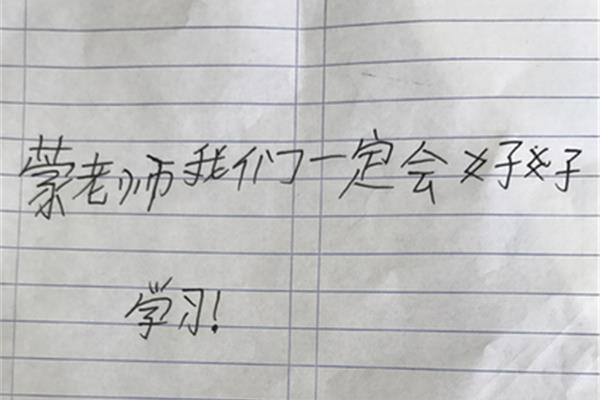 蒙老师我们一定会好好
学习!